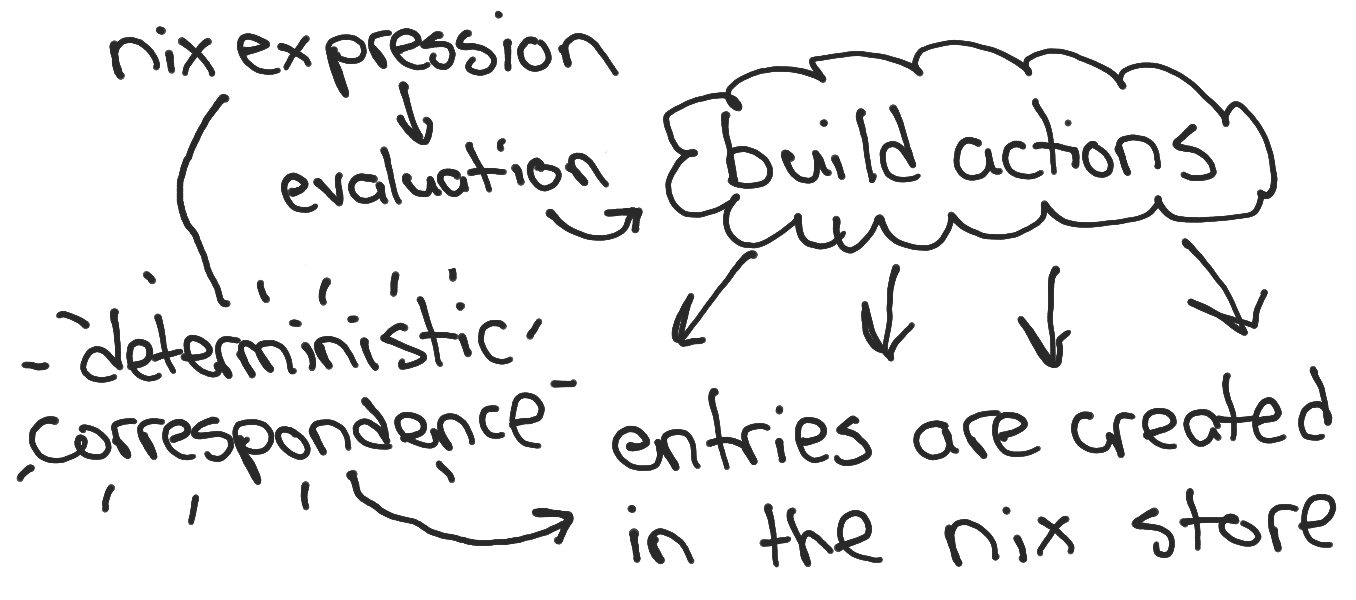 nix expression
evaluation
build actions
deterministic
correspondence
entries are created
in the nix store